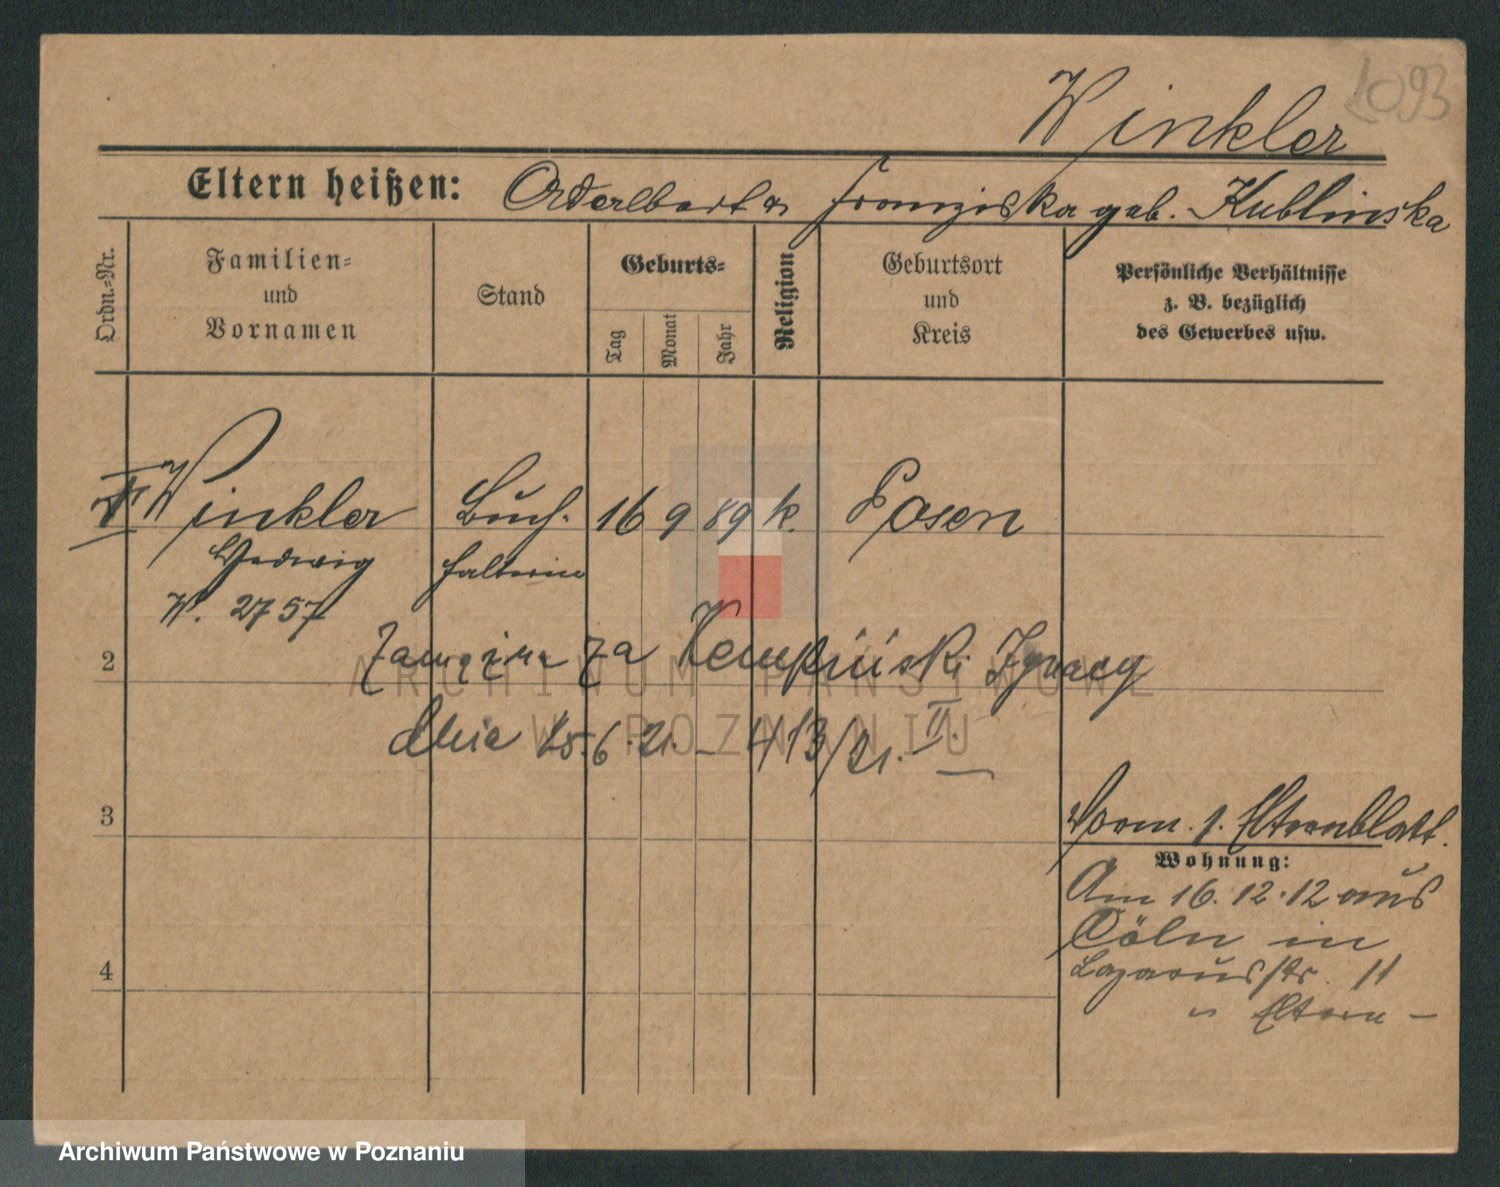 1093
Winkler
Eltern heißen: Adalbert u. Franziska geb. Kublinska
Ordn.-Nr.
Familien-
und
Vornamen
Stand
Geburts-
Tag
Monat
Jahr
Religion
Geburtsort
und
Kreis
Persönliche Verhältnisse
z. B. bezüglich
des Gewerbes usw.
Winkler Buch- 16 9 89 k. Posen
Hedwig halterin
W. 2757
2
zamężna za Kempiński Ignacy
dnia 25.6.21. – 413/21. II.
3
Vorm. s. Elternblatt.
Wohnung:
Am 16.12.12 aus
Cöln in
Lazarusstr. 11
4
Eltern –
ARCHIWUM PAŃSTWOWE
W POZNANIU
Archiwum Państwowe w Poznaniu